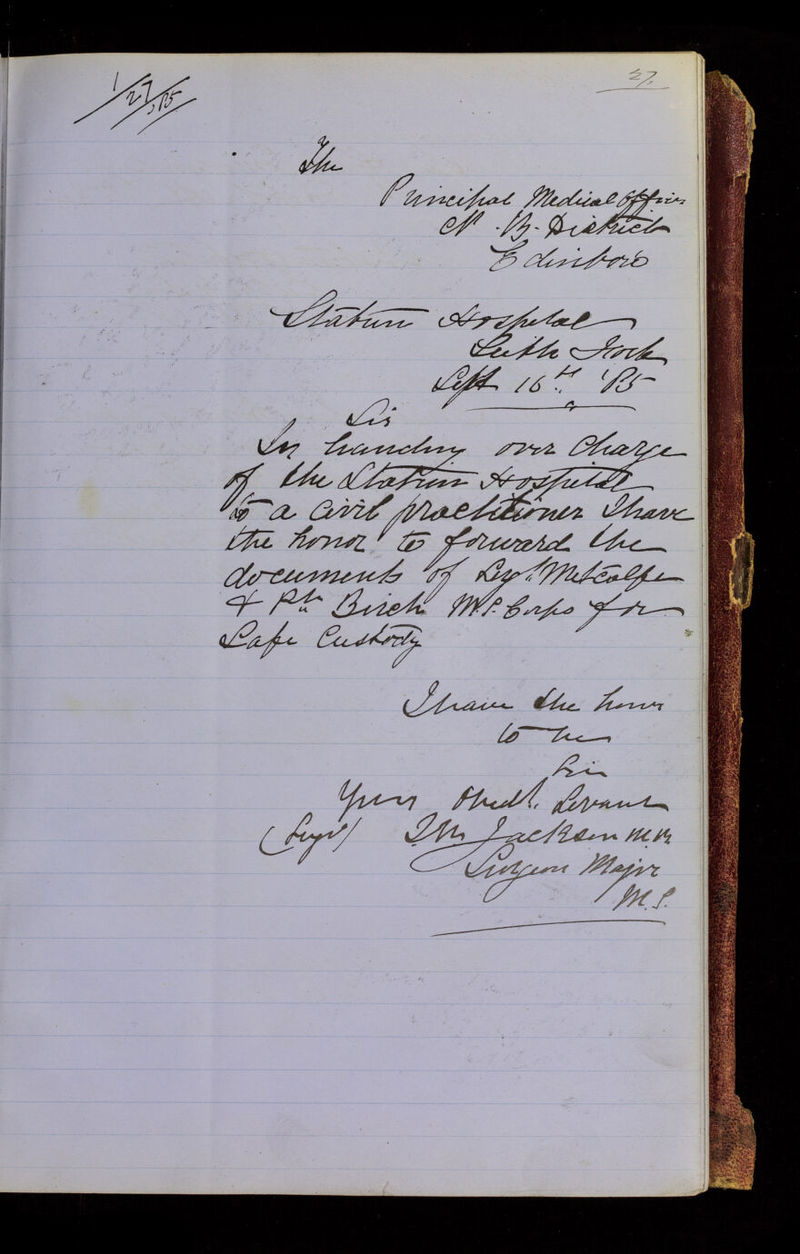 27.
1/27/85
The
Principal Medical Officer
N. B. District
Edinboro
Station Hospital
Leith Fort
Sept 16th '85
Sir
In handing over Charge
of the Station Hospital
to a civil practitioner I have
the honor to forward the
documents of Sergt. Metcalfe
& Pte Birch M.S. Corps for
Safe Custody
I have the honor
to be
Sir
Your Obedt. Servant
(Signd) Jackson M.B.
Surgeon Major
M.S.